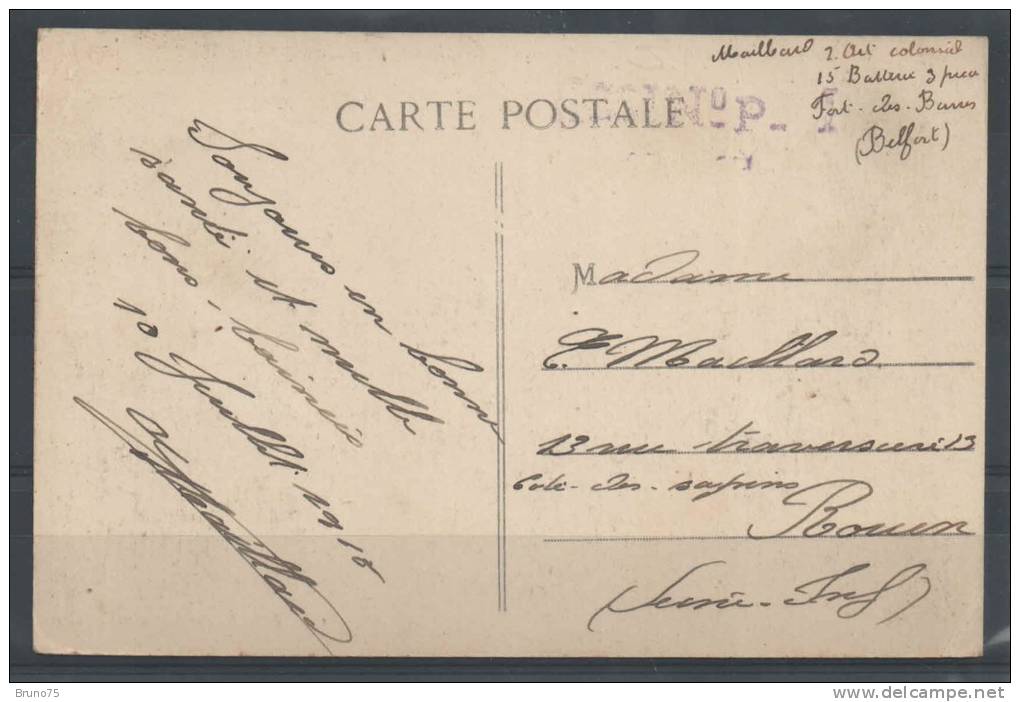 CARTE POSTALE
No P. 1
Maillard 2. Art colonial
15 Batterie 3 pièce
Fort-des-Barres
(Belfort)
Toujours en bonne
santé et mille
bons baisers
10 Juillet 1915
Maillard
Madame
E. Maillard
13 rue traversière 13
Cote-des-sapins
Rouen
(Seine-Inf)
Bruno75
delcampe.net